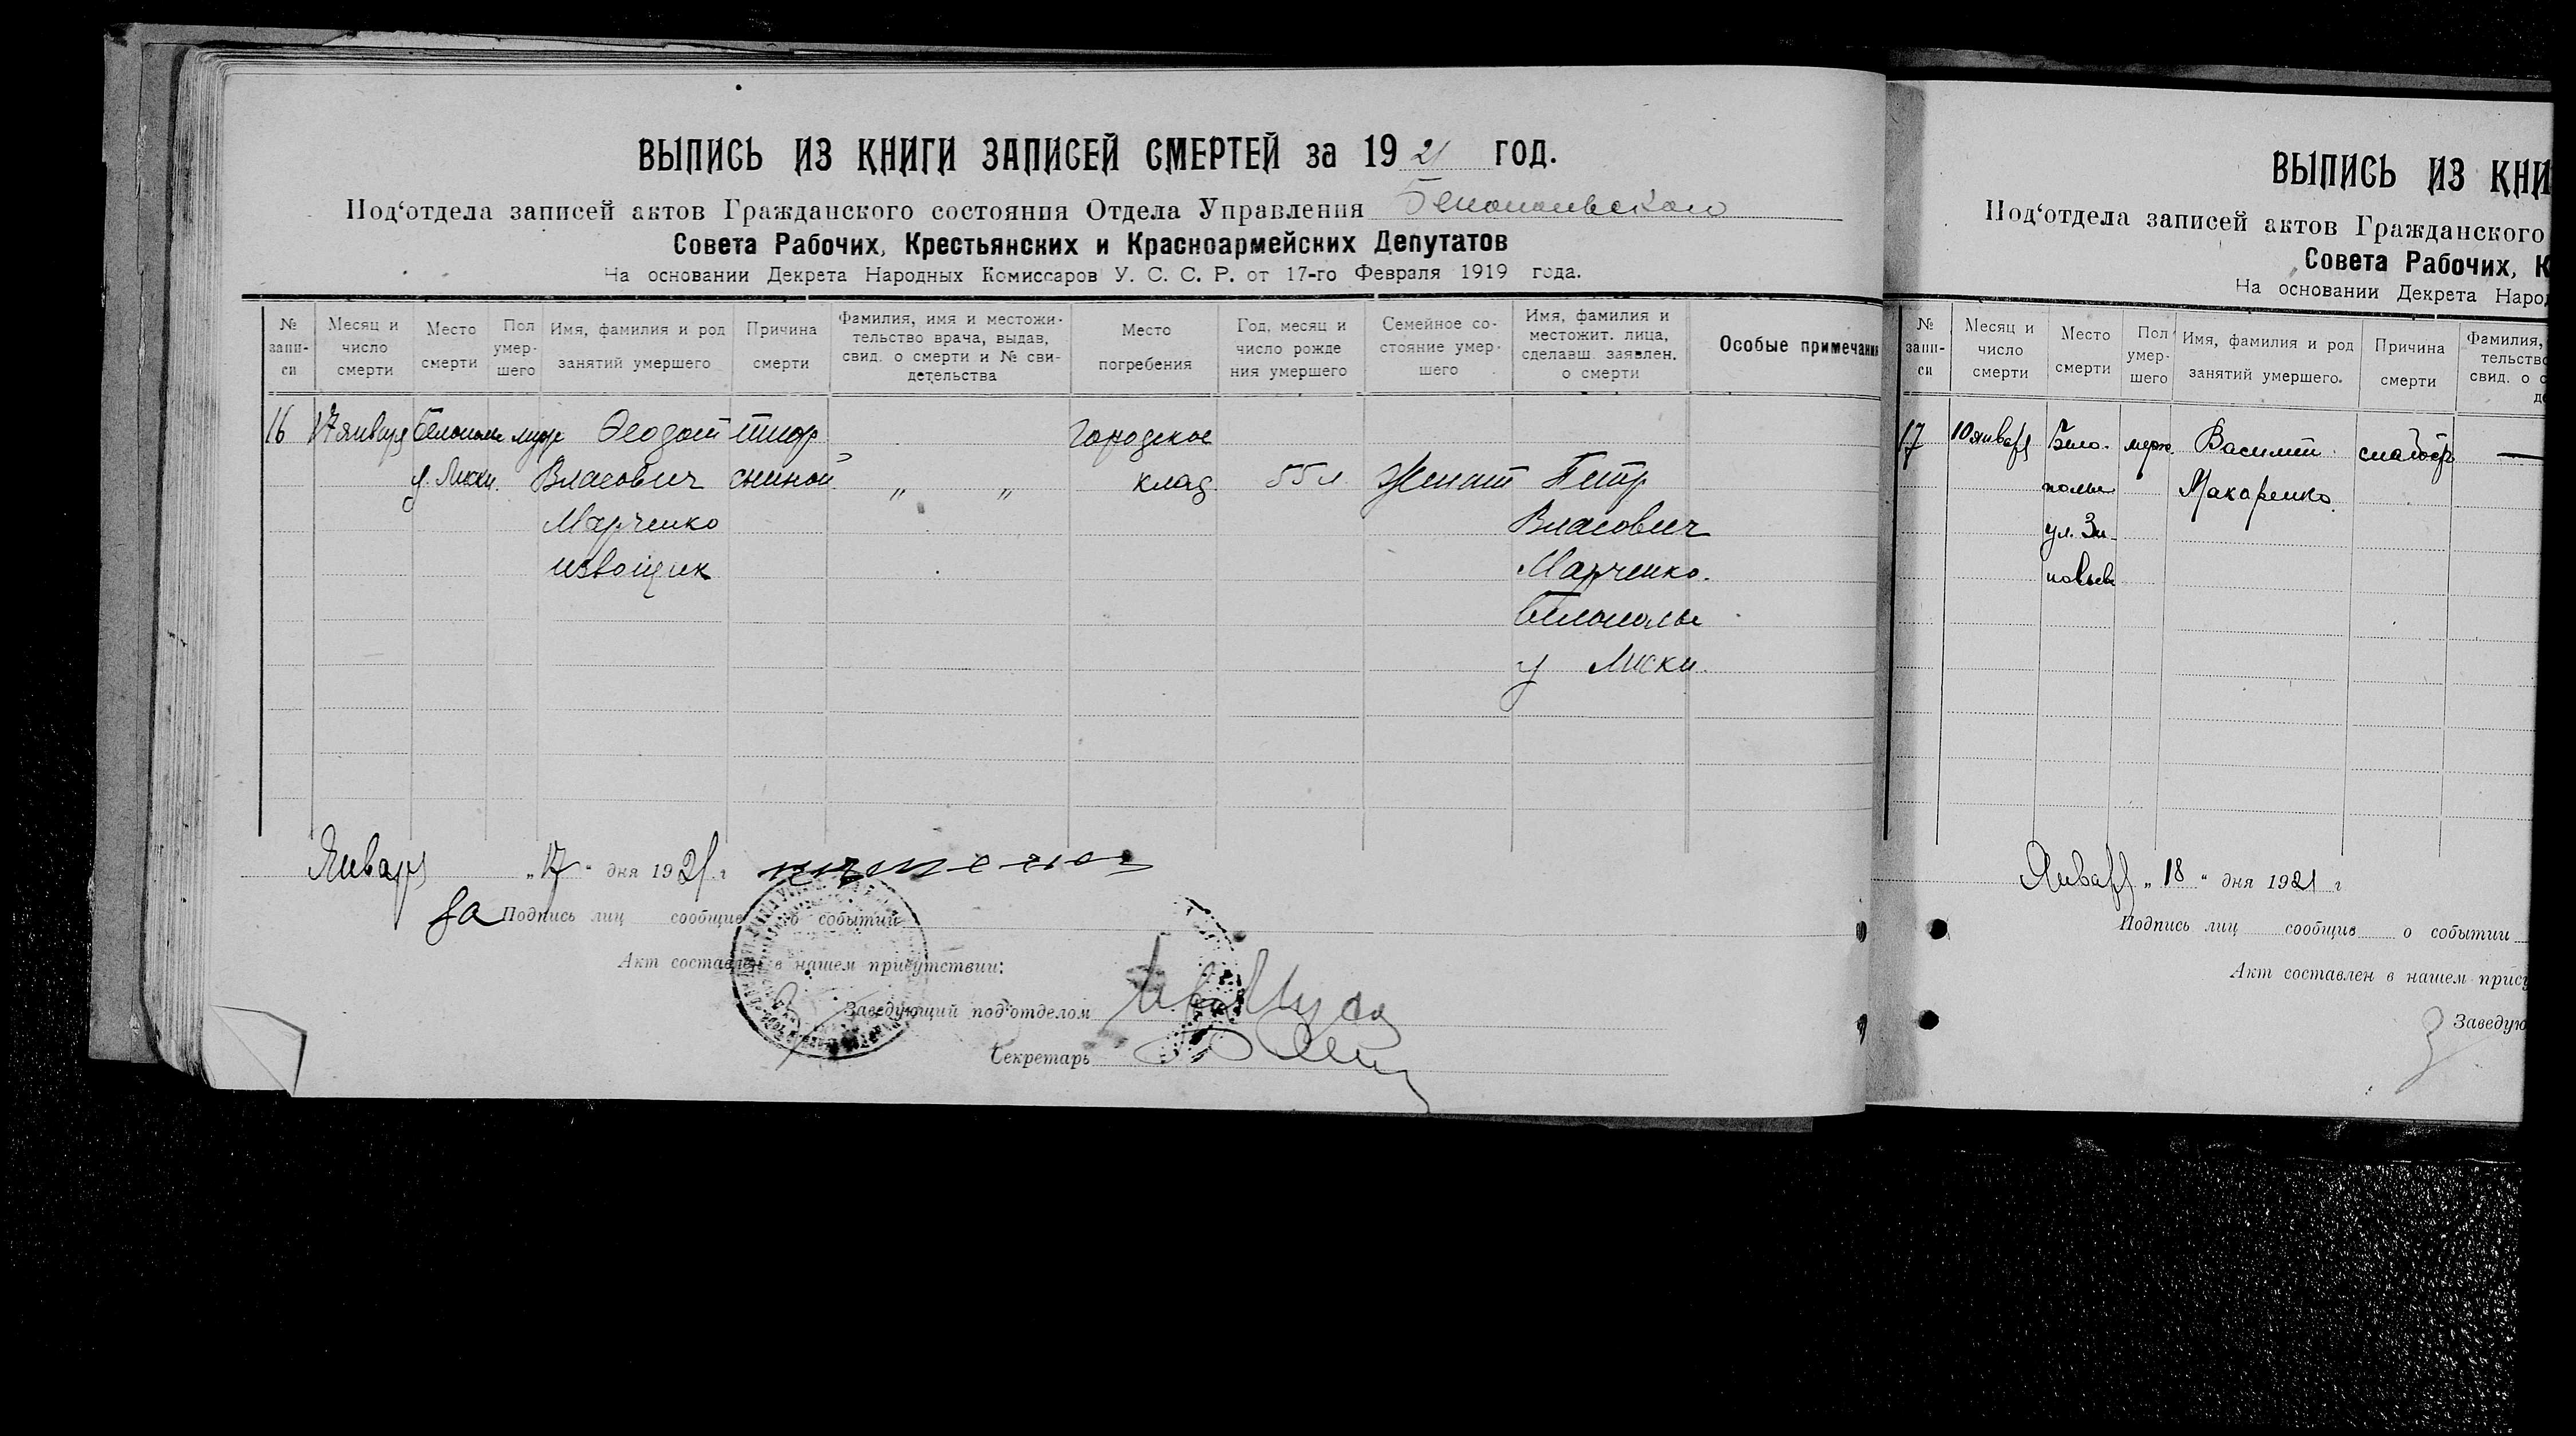 ВЫПИСЬ ИЗ КНИГИ ЗАПИСЕЙ СМЕРТЕЙ за 1921 ГОД.
Под‘отдела записей актов Гражданского состояния Отдела Управления Белопольского
Совета Рабочих, Крестьянских и Красноармейских Депутатов
На основании Декрета Народных Комиссаров У. С. С. Р. от 17-го Февраля 1919 года.
№ запи-си
Месяц и число смерти
Место смерти
Пол умер-шего
Имя, фамилия и род занятий умершего
Причина смерти
Фамилия, имя и местожи-тельство врача, выдав, свид. о смерти и № сви-детельства
Место погребения
Год, месяц и число рожде ния умершего
Семейное со-стояние умер-шего
Имя, фамилия и местожит. лица, сделавш. заявлен. о смерти
Особые примечания
16 17 января Белополье муж Феодот тиф Городское
у Лиски. Власович сыпной „ „ клад. 55 л. Женат Петр
Марченко Власович
извощик Марченко.
Белополье
у Лиски.
Январ „17“ дня 1921 г
за Подпись лиц сообщив о событии
Акт составлен в нашем присутствии:
Заведующий под‘отделом
Секретарь
ВЫПИСЬ ИЗ КНИ
Под‘отдела записей актов Гражданского
Совета Рабочих, К
На основании Декрета Народ
№ запи-си
Месяц и число смерти
Место смерти
Пол умер-шего
Имя, фамилия и род занятий умершего.
Причина смерти
Фамилия, тельство свид. о с де
17 10 январ Бело- муж. Василий слабость —
полье Макаренко.
ул. Зи-
новьев
Январ „18“ дня 1921 г
Подпись лиц сообщив о событии
Акт составлен в нашем прису
Заведую